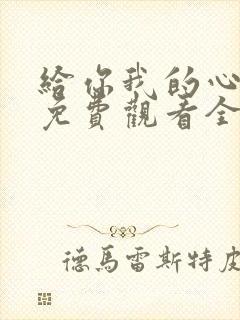 給你我的心
免費觀看全
德馬雷斯特皮